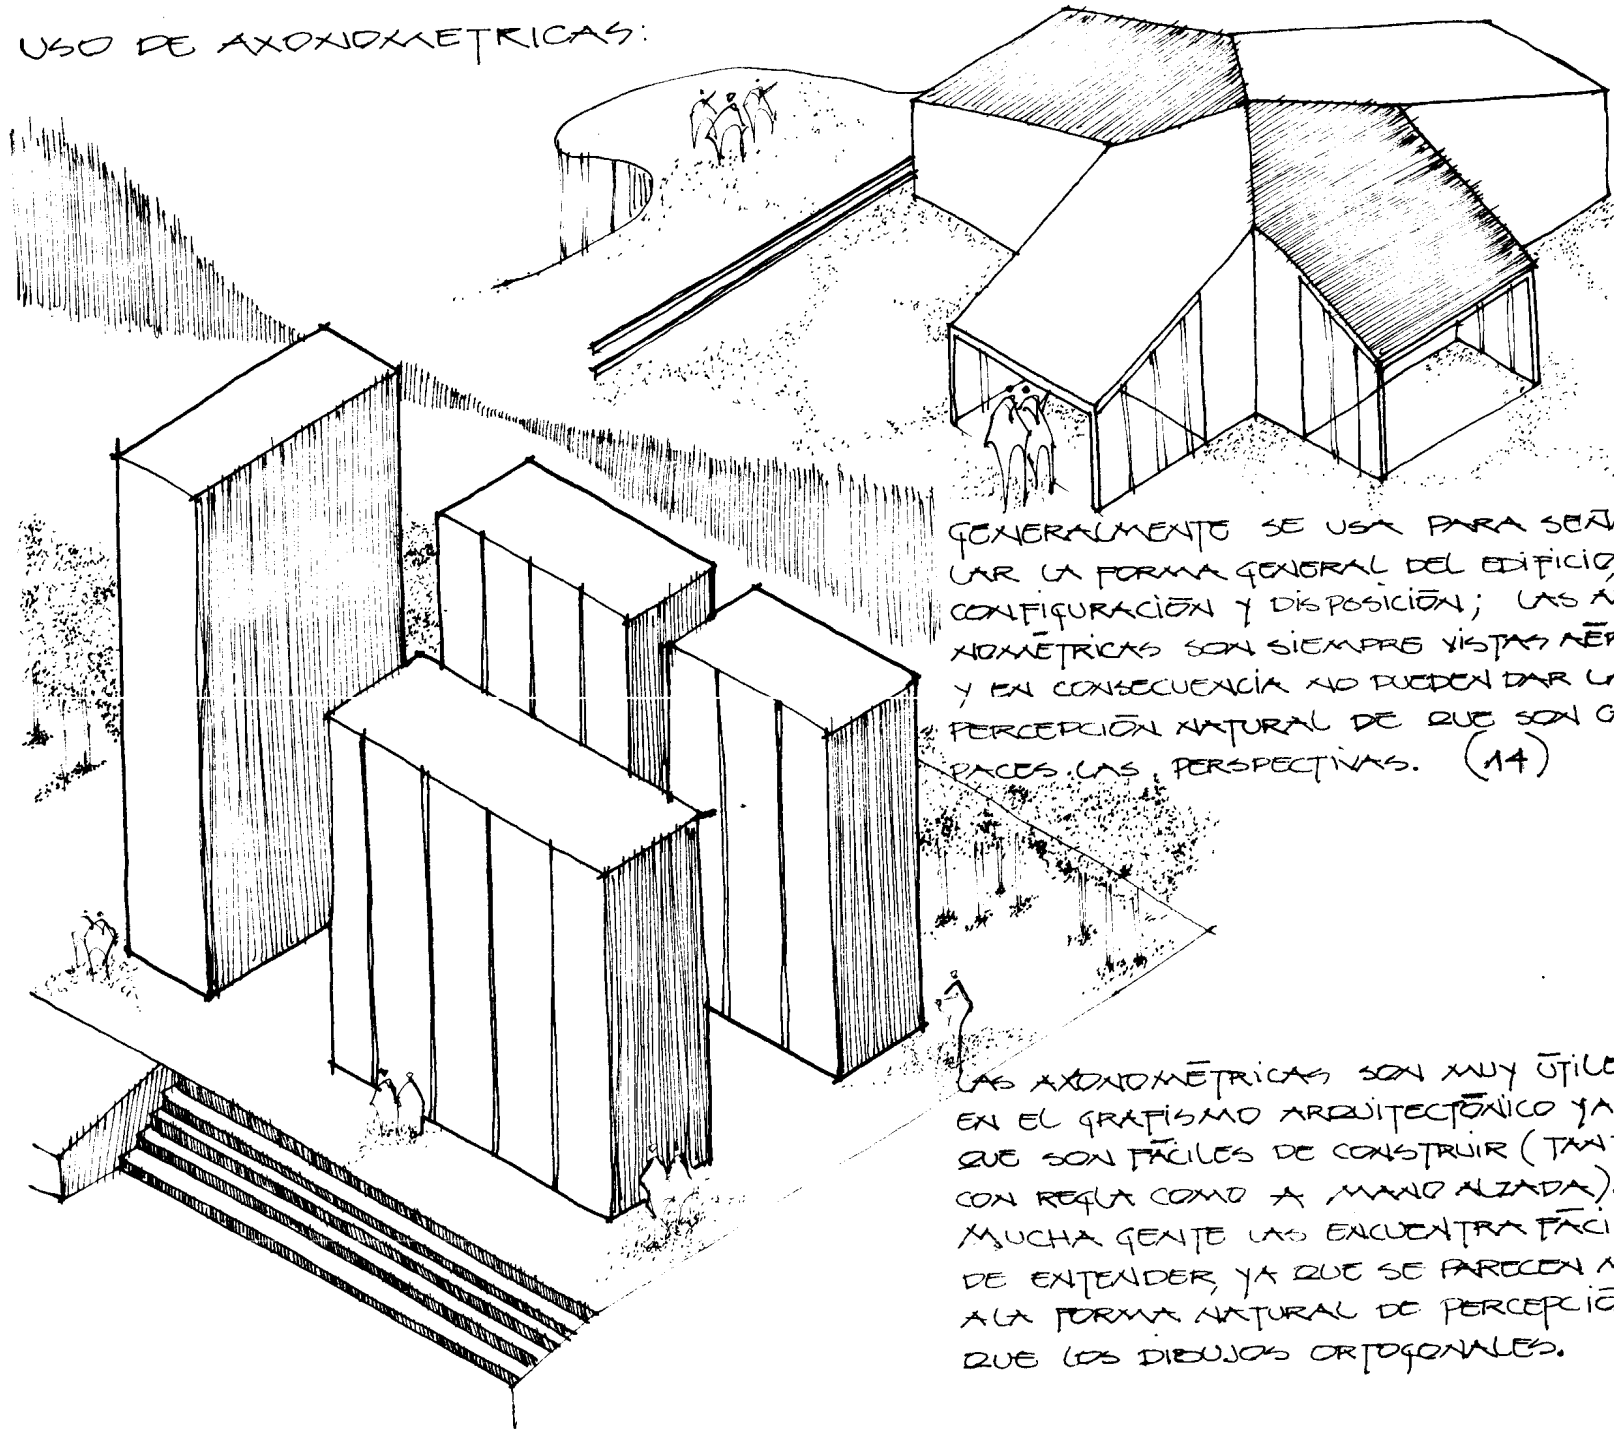 USO DE AXONOMETRICAS:
GENERALMENTE SE USA PARA SEÑA
LAR LA FORMA GENERAL DEL EDIFICIO,
CONFIGURACIÓN Y DISPOSICIÓN; LAS A
NOMÉTRICAS SON SIEMPRE VISTAS AÉR
Y EN CONSECUENCÍA NO PUEDEN DAR LA
PERCEPCIÓN NATURAL DE QUE SON C
PACES LAS PERSPECTIVAS. (14)
LAS AXONOMÉTRICAS SON MUY ÚTILE
EN EL GRAFISMO ARQUITECTÓNICO YA
QUE SON FÁCILES DE CONSTRUIR (TANT
CON REGLA COMO A MANO ALZADA).
MUCHA GENTE LAS ENCUENTRA FÁCI
DE ENTENDER, YA QUE SE PARECEN M
A LA FORMA NATURAL DE PERCEPCIÓ
QUE LOS DIBUJOS ORTOGONALES.